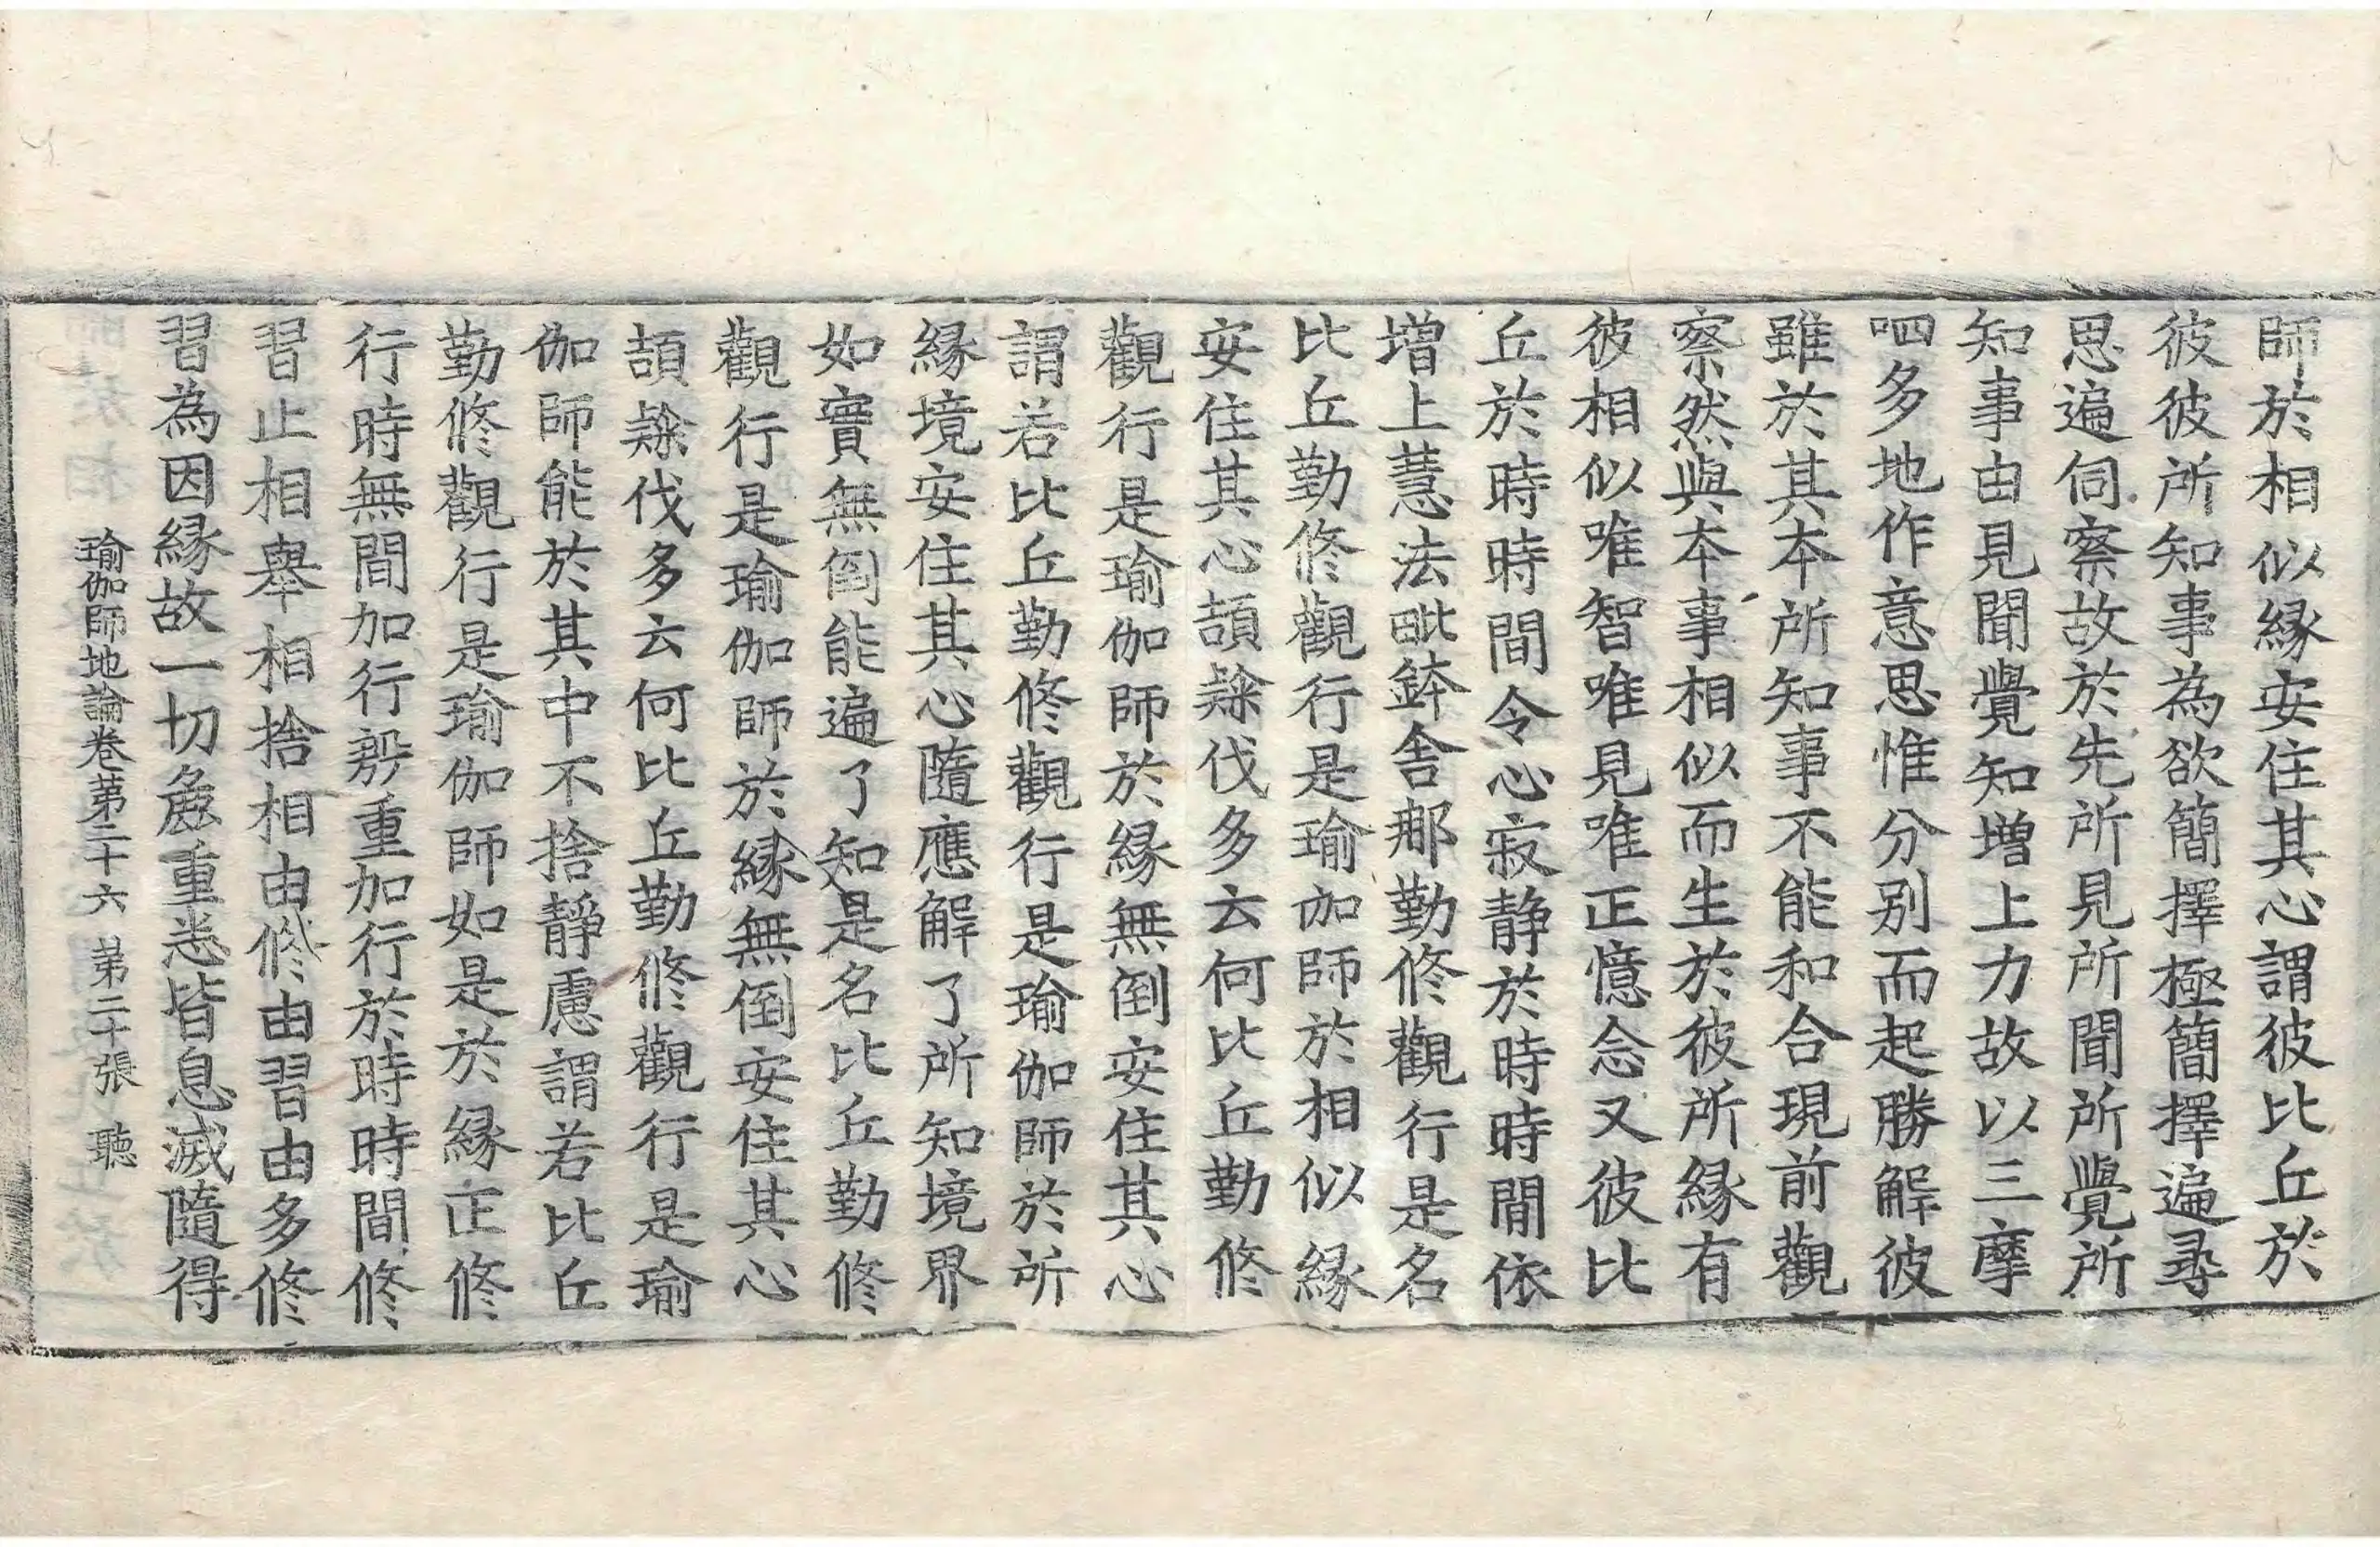 師於相似緣安住其心謂彼比丘於
彼彼所知事為欲簡擇極簡擇遍尋
思遍伺察故於先所見所聞所覺所
知事由見聞覺知增上力故以三摩
呬多地作意思惟分別而起勝解彼
雖於其本所知事不能和合現前觀
察然與本事相似而生於彼所緣有
彼相似唯智唯見唯正憶念又彼比
丘於時時間令心寂靜於時時間依
增上慧法毗鉢舍那勤修觀行是名
比丘勤修觀行是瑜伽師於相似緣
安住其心頡隸伐多云何比丘勤修
觀行是瑜伽師於緣無倒安住其心
謂若比丘勤修觀行是瑜伽師於所
緣境安住其心隨應解了所知境界
如實無倒能遍了知是名比丘勤修
觀行是瑜伽師於緣無倒安住其心
頡隸伐多云何比丘勤修觀行是瑜
伽師能於其中不捨靜慮謂若比丘
勤修觀行是瑜伽師如是於緣正修
行時無間加行殷重加行於時時間修
習止相舉相捨相由修由習由多修
習為因緣故一切麁重悉皆息滅隨得
瑜伽師地論卷第二十六 第二十張 聽